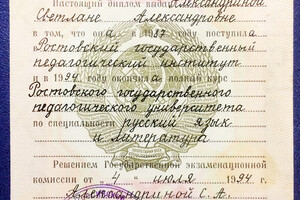 Настоящий диплом выдан Александриной
Светлане Александровне
в том, что она в 1987 поступила
Ростовский государственный
педагогический институт
и в 1994 окончила полный курс
Ростовского государственного
педагогического университета
по специальности русский язык
и литература
Решением Государственной экзаменационной
комиссии от "4" июля 1994 г.
Александриной С. А.